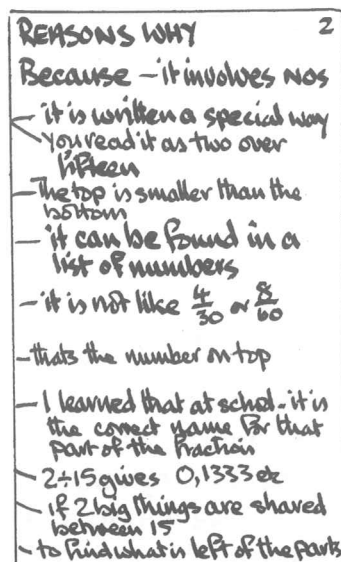 REASONS WHY 2
Because - it involves nos
- it is written a special way
you read it as two over
fifteen
- The top is smaller than the
bottom
- it can be found in a
list of numbers
- it is not like 4/30 or 8/60
- thats the number on top
- I learned that at school - it is
the correct name for that
part of the fraction
- 2÷15 gives 0,1333 etc
- if 2 big things are shared
between 15
- to find what is left of the parts